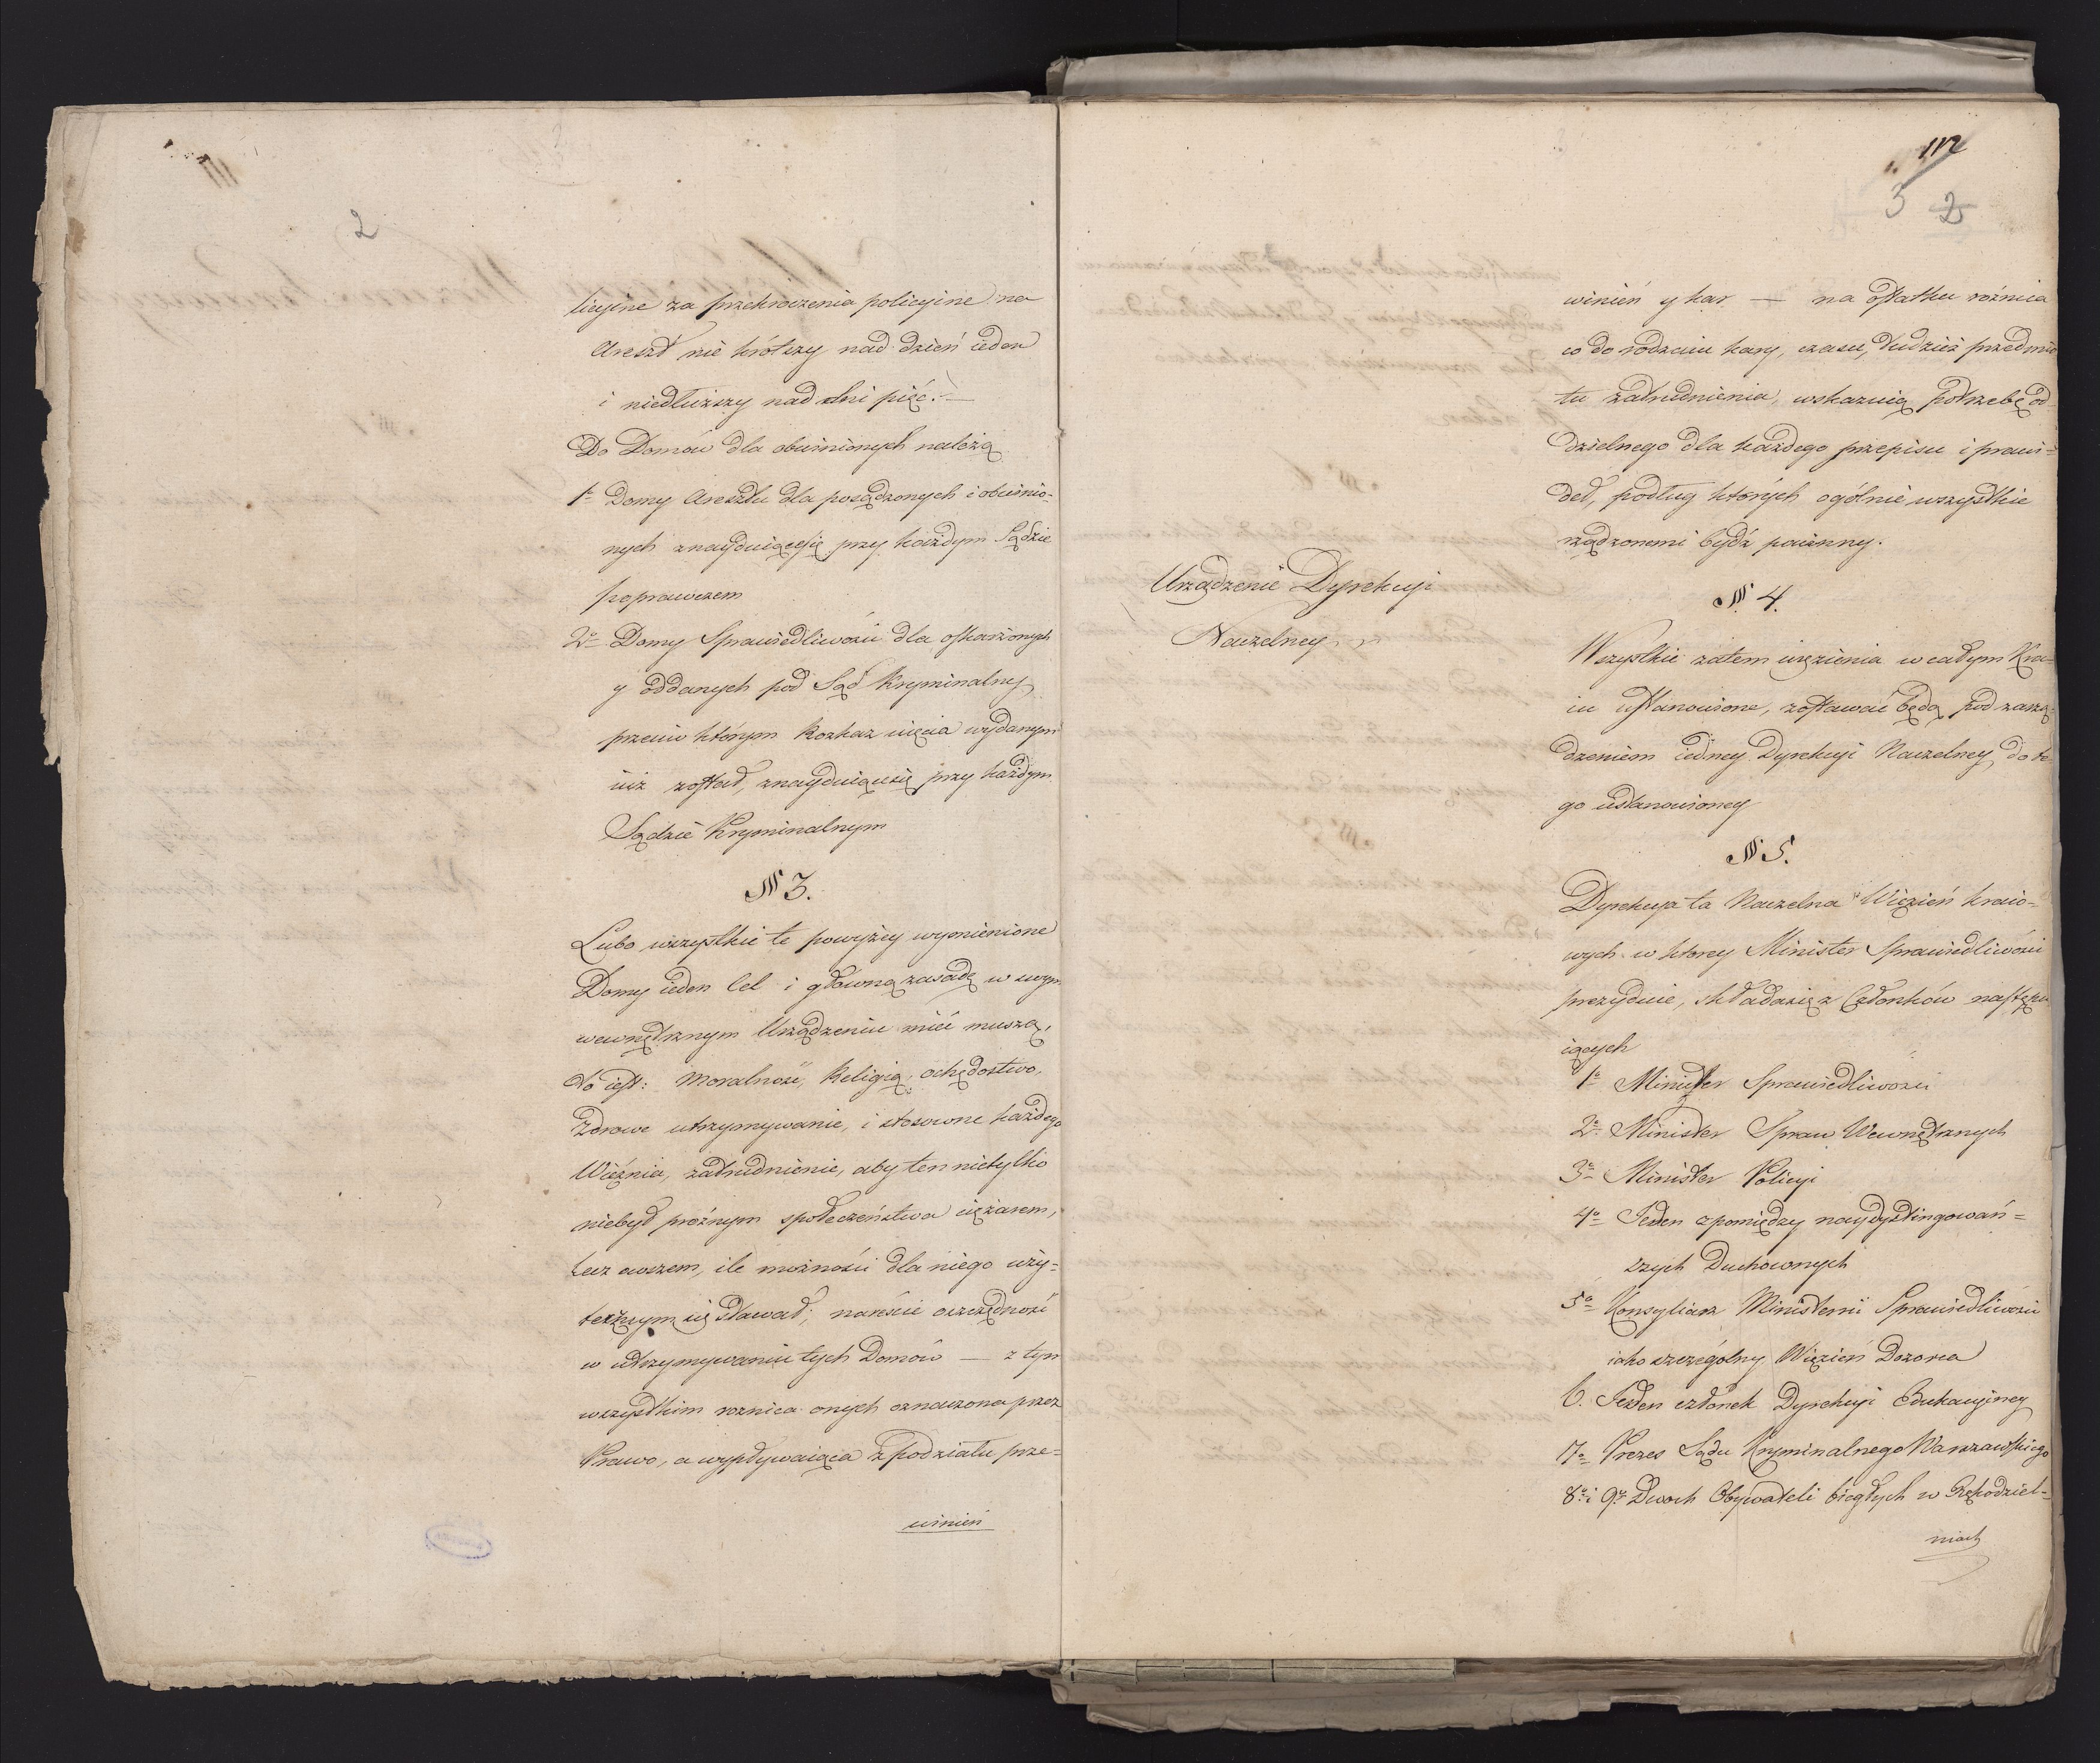 2
licyine za przekroczenia policyine na
Areszt nie krótszy nad dzień ieden
i niedłuższy nad dni pięć.—
Do Domów dla obwinionych należą
1º Domy Aresztu dla posądzonych i obwinio-
nych znayduiącesię przy każdym Sądzie
poprawczem
2º Domy Sprawiedliwości dla oskarżonych
y oddanych pod Sąd Kryminalny
przeciw którym Rozkaz ujęcia wydanym
iuż został, znayduiącesię przy każdym
Sądzie Kryminalnym
§ 3.
Lubo wszystkie te powyżey wymienione
Domy ieden Cel i głowną zasadę w swym
wewnętrznym Urządzeniu mieć muszą,
to iest: Moralność, Religią, ochędostwo,
Zdrowe utrzymywanie, i stosowne każdego
Więźnia, zatrudnienie, aby ten nietylko
niebył próżnym społeczeństwa ciężarem,
lecz owszem, ile możności dla niego uży-
tecznym się stawał; nareście oszczędność
w utrzymywaniu tych Domów — z tym
wszystkim roznica onych oznaczona przez
Prawo, a wypływaiąca z podziału prze-
winień
112
3 2
winień y kar — na ostatku roźnica
co do rodzaiu kary, czasu, tudzież przedmio
tu zatrudnienia, wskazuią potrzebę od-
dzielnego dla każdego przepisu i prawi-
deł, podług których ogólnie wszystkie
rządzonemi bydź powinny.
Urządzenie Dyrekcyi
Naczelney
§ 4.
Wszystkie zatem więzienia w całym Kra-
iu ustanowione, zostawać będą pod zarzą-
dzeniem iedney Dyrekcyi Naczelney, do te
go ustanowioney
§ 5.
Dyrekcya ta Naczelna Więzień kraio-
wych w ktorey Minister Sprawiedliwości
prezyduie, składasię z Członków nastepu
iących
1º Minister Sprawiedliwości
2º Minister Spraw Wewnętrznych
3º Minister Policyi
4º Jeden z pomiędzy naydystingowań-
szych Duchownych
5º Konsyliarz Ministerii Sprawiedliwości
iako szczególny Więzień Dozorca
6. Jeden członek Dyrekcyi Edukacyiney
7º Prezes Sądu Kryminalnego Warszawskiego
8º i 9º Dwoch Obywateli biegłych w Rękodziel-
niach